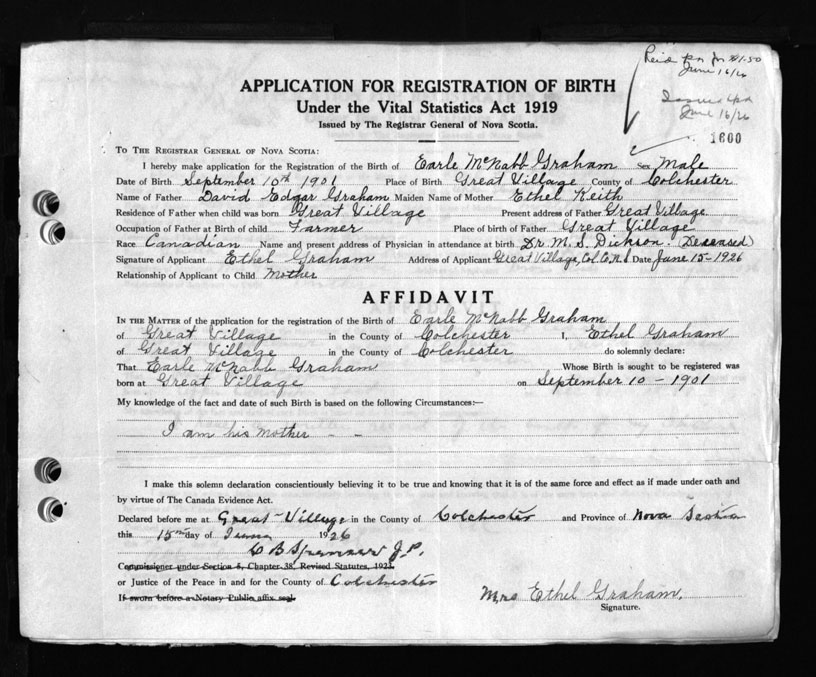 June 16/26
June 16/26
1600
APPLICATION FOR REGISTRATION OF BIRTH
Under the Vital Statistics Act 1919
Issued by The Registrar General of Nova Scotia.
TO THE REGISTRAR GENERAL OF NOVA SCOTIA:
I hereby make application for the Registration of the Birth of Earle McNabb Graham Sex Male
Date of Birth September 10th 1901 Place of Birth Great Village County of Colchester
Name of Father David Edgar Graham Maiden Name of Mother Ethel Keith
Residence of Father when child was born Great Village Present address of Father Great Village
Occupation of Father at Birth of child Farmer Place of birth of Father Great Village
Race Canadian Name and present address of Physician in attendance at birth Dr M. S. Dickson. (Deceased)
Signature of Applicant Ethel Graham Address of Applicant Great Village, Col. Co. N.S Date June 15-1926
Relationship of Applicant to Child Mother
AFFIDAVIT
IN THE MATTER of the application for the registration of the Birth of Earle McNabb Graham
of Great Village in the County of Colchester I, Ethel Graham
of Great Village in the County of Colchester do solemnly declare:
That Earle McNabb Graham Whose Birth is sought to be registered was
born at Great Village on September 10-1901
My knowledge of the fact and date of such Birth is based on the following Circumstances:—
I am his mother - -
I make this solemn declaration conscientiously believing it to be true and knowing that it is of the same force and effect as if made under oath and
by virtue of The Canada Evidence Act.
Declared before me at Great Village in the County of Colchester and Province of Nova Scotia
this 15th day of June 1926
C B Spencer J.P.
Commissioner under Section 8, Chapter 38, Revised Statutes, 1923
or Justice of the Peace in and for the County of Colchester
If sworn before a Notary Public affix seal.
Mrs Ethel Graham.
Signature.